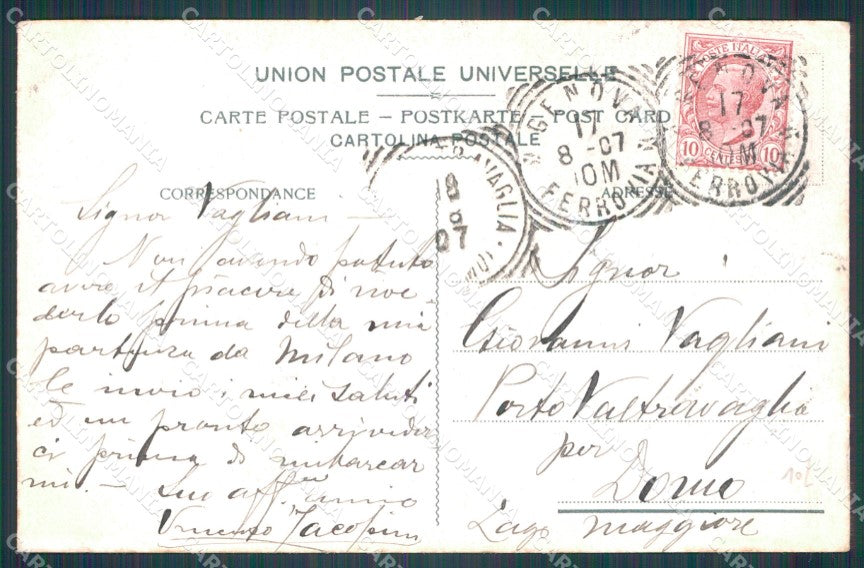 UNION POSTALE UNIVERSELLE
CARTE POSTALE – POSTKARTE – POST CARD
CARTOLINA POSTALE
CORRESPONDANCE
ADRESSE
POSTE ITALIANE
10 CENTESIMI 10
GENOVA
17
8 - 07
10M
FERROVIA
GENOVA
17
8 - 07
10M
FERROVIA
VAGLIA
8
07
Signor Vagliani
Non avendo potuto
avere il piacere di rive
derlo prima della mia
partenza da Milano
le invio i miei saluti
ed un pronto arriveder
ci prima di imbarcar
mi. — Suo aff. amico
Vincenzo Jacopini
Signor
Giovanni Vagliani
Porto Valtravaglia
per
Domo
Lago Maggiore
CARTOLINOMANIA